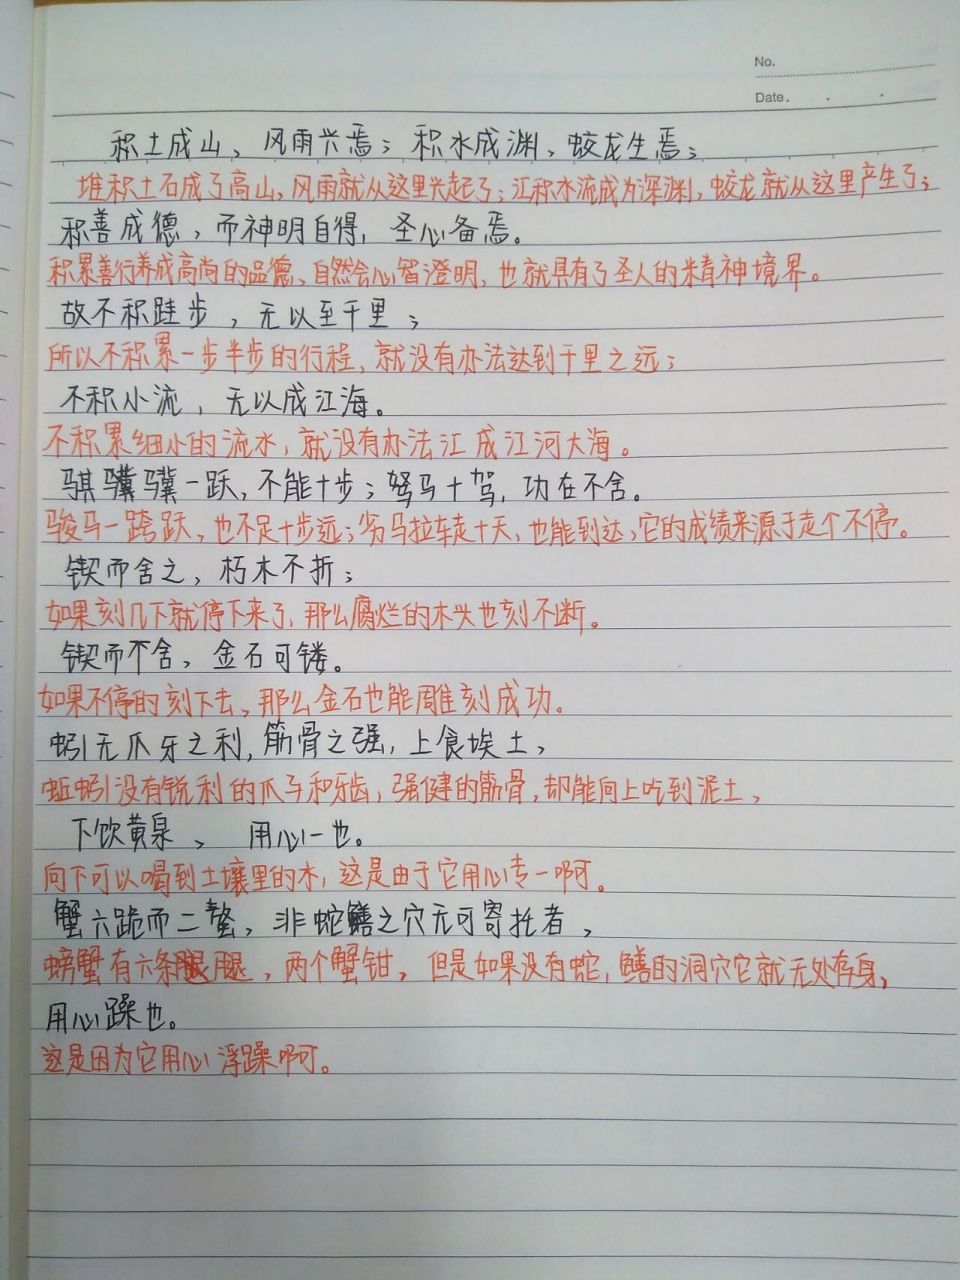 No.
Date.
积土成山，风雨兴焉；积水成渊，蛟龙生焉；
堆积土石成了高山，风雨就从这里兴起了；汇积水流成为深渊，蛟龙就从这里产生了；
积善成德，而神明自得，圣心备焉。
积累善行养成高尚的品德，自然会心智澄明，也就具有了圣人的精神境界。
故不积跬步，无以至千里；
所以不积累一步半步的行程，就没有办法达到千里之远；
不积小流，无以成江海。
不积累细小的流水，就没有办法汇成江河大海。
骐骥骥一跃，不能十步；驽马十驾，功在不舍。
骏马一跨跃，也不足十步远；劣马拉车走十天，也能到达，它的成绩来源于走个不停。
锲而舍之，朽木不折；
如果刻几下就停下来了，那么腐烂的木头也刻不断。
锲而不舍，金石可镂。
如果不停的刻下去，那么金石也能雕刻成功。
蚓无爪牙之利，筋骨之强，上食埃土，
蚯蚓没有锐利的爪子和牙齿，强健的筋骨，却能向上吃到泥土，
下饮黄泉，用心一也。
向下可以喝到土壤里的水，这是由于它用心专一啊。
蟹六跪而二螯，非蛇鳝之穴无可寄托者，
螃蟹有六条腿，两个蟹钳，但是如果没有蛇，鳝的洞穴它就无处存身，
用心躁也。
这是因为它用心浮躁啊。